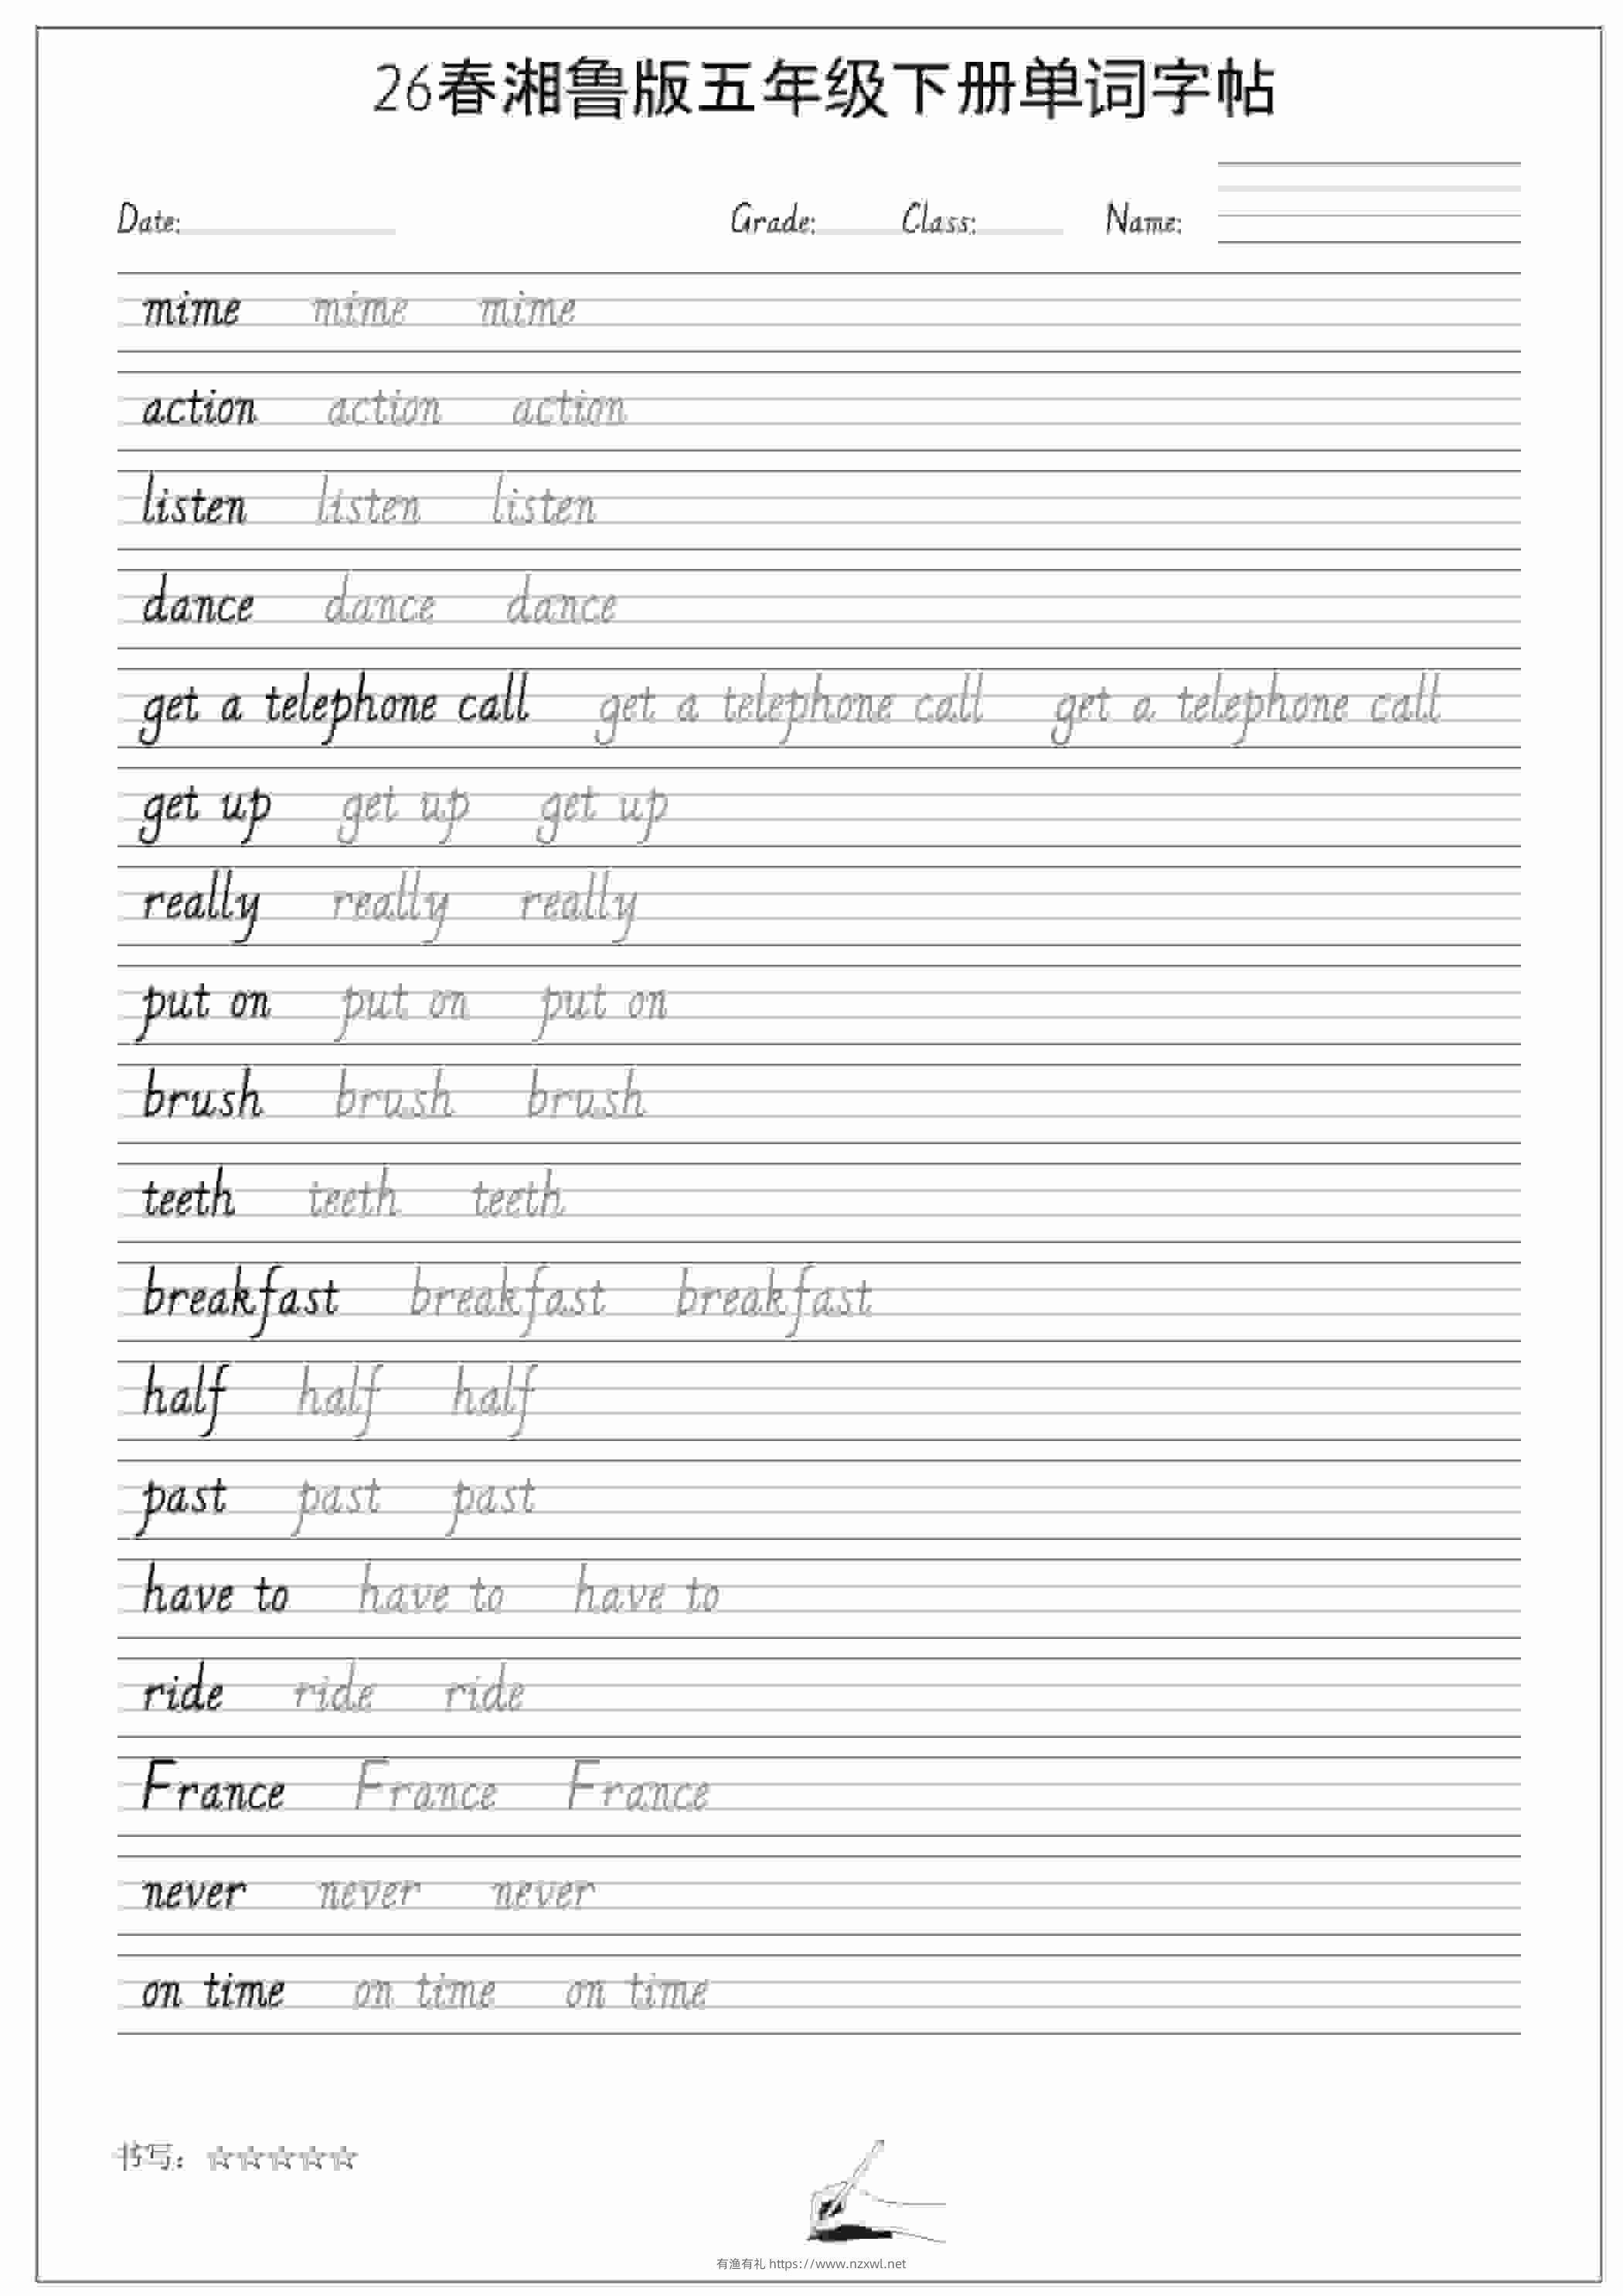 26春湘鲁版五年级下册单词字帖
Date: Grade: Class: Name:
mime mime mime
action action action
listen listen listen
dance dance dance
get a telephone call get a telephone call get a telephone call
get up get up get up
really really really
put on put on put on
brush brush brush
teeth teeth teeth
breakfast breakfast breakfast
half half half
past past past
have to have to have to
ride ride ride
France France France
never never never
on time on time on time
书写：☆☆☆☆☆
有渔有礼 https://www.nzxwl.net